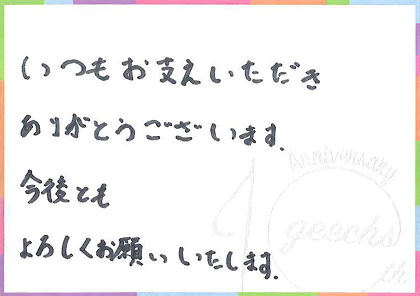 いつもお支えいただき
ありがとうございます.
今後とも
よろしくお願いいたします.
Anniversary
10
geechs
th